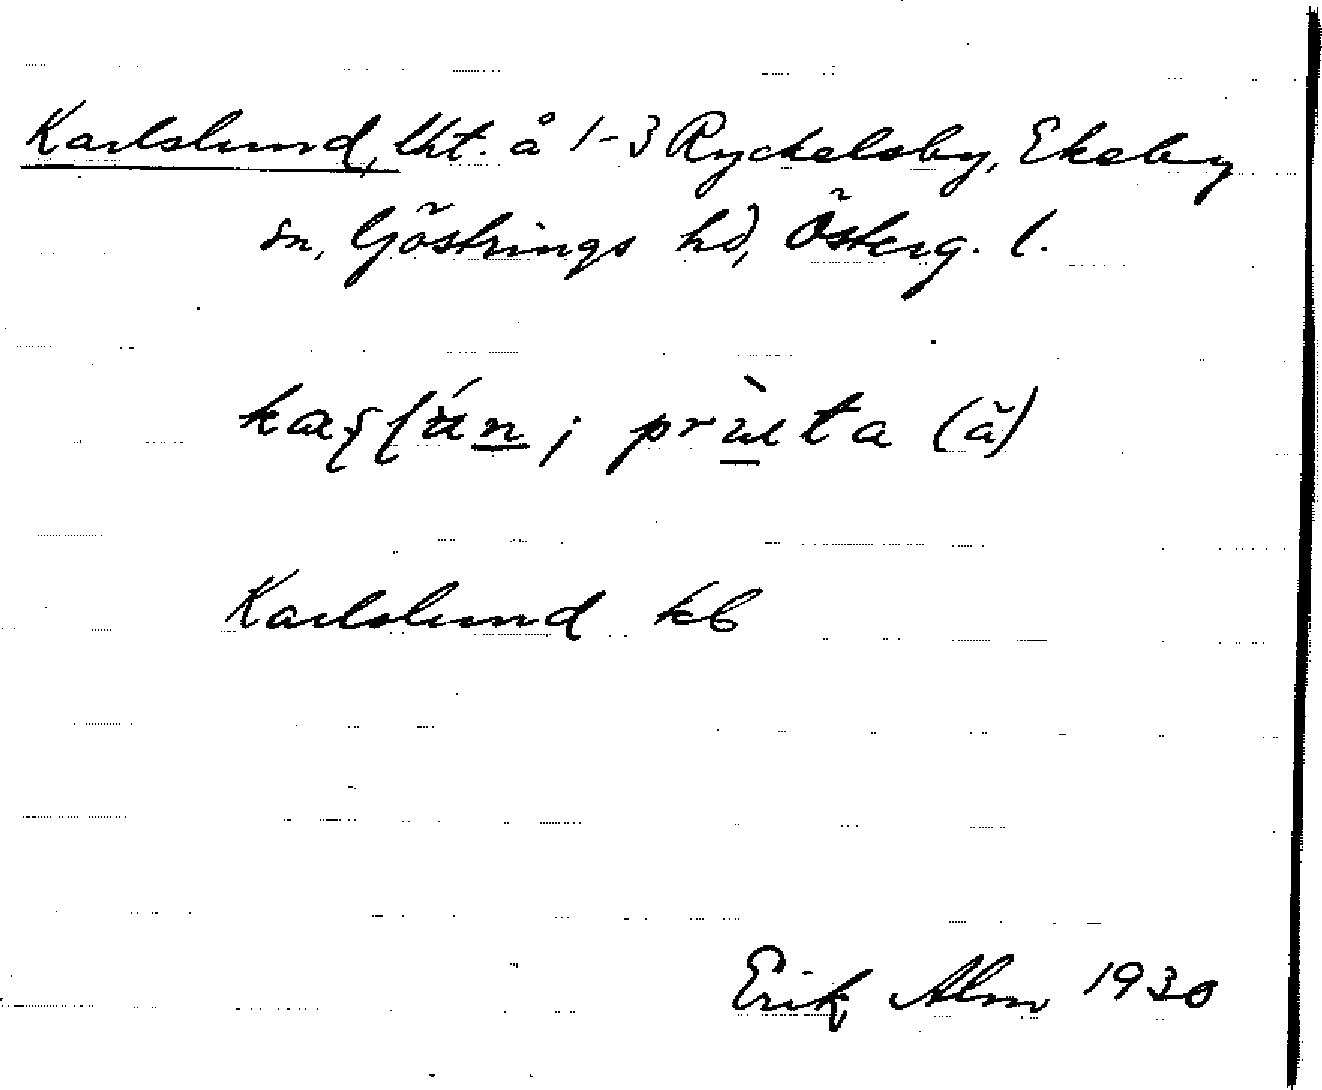 Karlslund, lht. å 1-3 Ryckelsby, Ekeby
sn, Göstrings hd, Österg. l.
(ã)
Karlslund kb
Erik Alm 1930